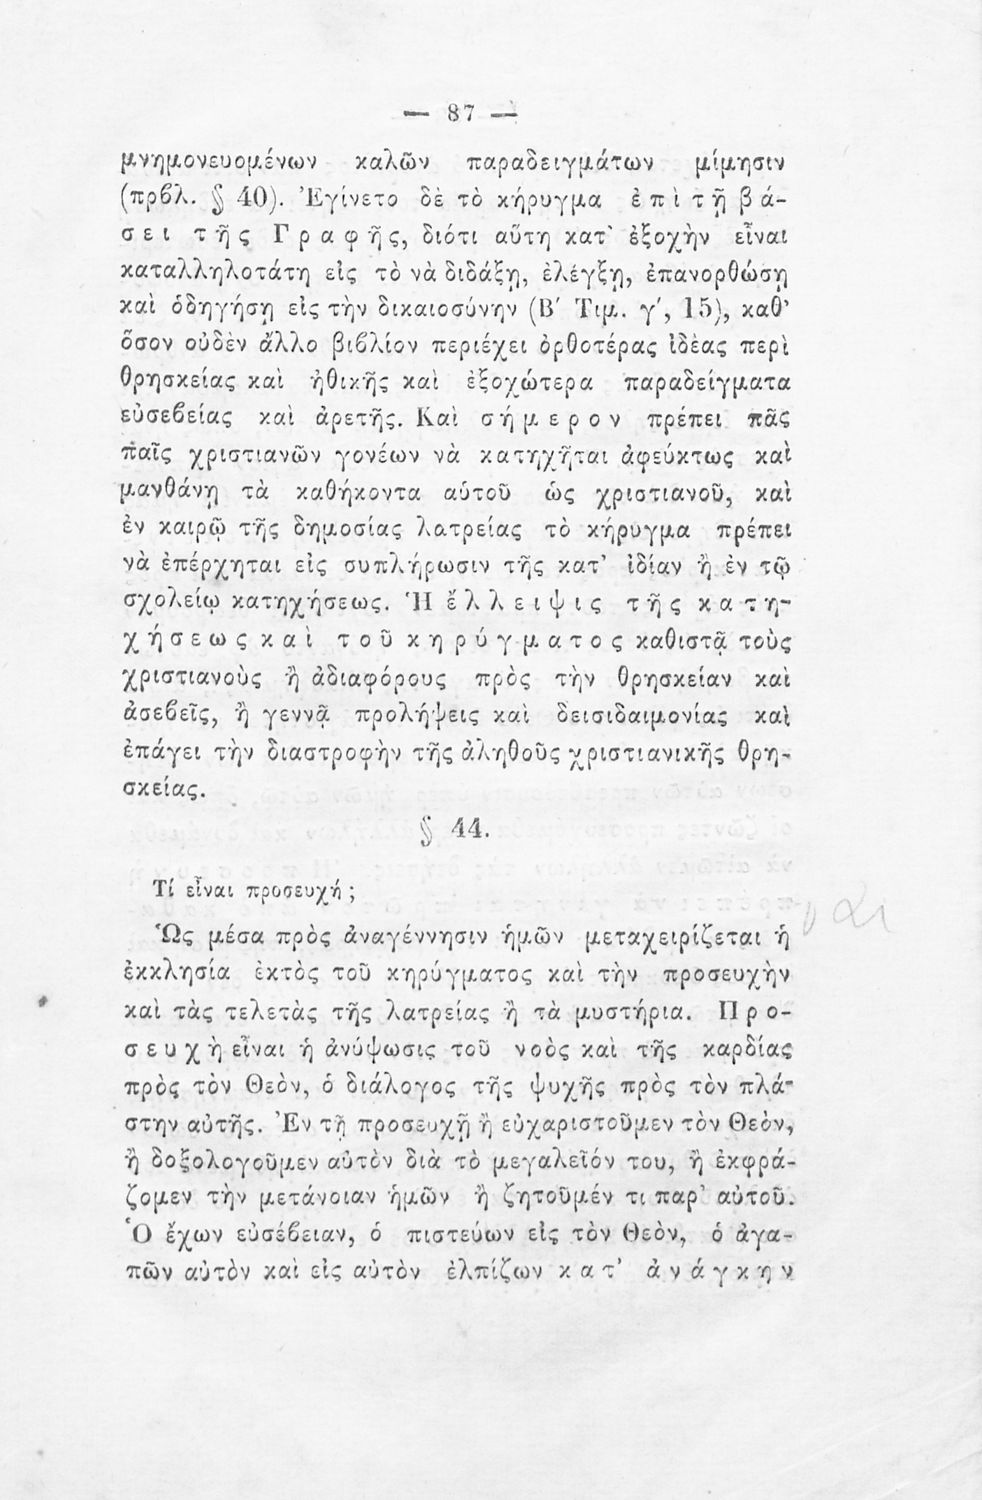 — 87 —
μνημονευομένων καλῶν παραδειγμάτων μίμησιν
(πρβλ. § 40). Ἐγίνετο δὲ τὸ κήρυγμα ἐπὶ τῇ βά-
σει τῆς Γραφῆς, διότι αὕτη κατ' ἐξοχὴν εἶναι
καταλληλοτάτη εἰς τὸ νὰ διδάξῃ, ἐλέγξῃ, ἐπανορθώσῃ
καὶ ὁδηγήσῃ εἰς τὴν δικαιοσύνην (Β΄ Τιμ. γ΄, 15), καθ'
ὅσον οὐδὲν ἄλλο βιβλίον περιέχει ὀρθοτέρας ἰδέας περὶ
θρησκείας καὶ ἠθικῆς καὶ ἐξοχώτερα παραδείγματα
εὐσεβείας καὶ ἀρετῆς. Καὶ σήμερον πρέπει πᾶς
παῖς χριστιανῶν γονέων νὰ κατηχῆται ἀφεύκτως καὶ
μανθάνῃ τὰ καθήκοντα αὑτοῦ ὡς χριστιανοῦ, καὶ
ἐν καιρῷ τῆς δημοσίας λατρείας τὸ κήρυγμα πρέπει
νὰ ἐπέρχηται εἰς συπλήρωσιν τῆς κατ' ἰδίαν ἢ ἐν τῷ
σχολείῳ κατηχήσεως. Ἡ ἔλλειψις τῆς κατη-
χήσεως καὶ τοῦ κηρύγματος καθιστᾷ τοὺς
χριστιανοὺς ἢ ἀδιαφόρους πρὸς τὴν θρησκείαν καὶ
ἀσεβεῖς, ἢ γεννᾷ προλήψεις καὶ δεισιδαιμονίας καὶ
ἐπάγει τὴν διαστροφὴν τῆς ἀληθοῦς χριστιανικῆς θρη-
σκείας.
§ 44.
Τί εἶναι προσευχή;
Ὡς μέσα πρὸς ἀναγέννησιν ἡμῶν μεταχειρίζεται ἡ
ἐκκλησία ἐκτὸς τοῦ κηρύγματος καὶ τὴν προσευχὴν
καὶ τὰς τελετὰς τῆς λατρείας ἢ τὰ μυστήρια. Προ-
σευχὴ εἶναι ἡ ἀνύψωσις τοῦ νοὸς καὶ τῆς καρδίας
πρὸς τὸν Θεὸν, ὁ διάλογος τῆς ψυχῆς πρὸς τὸν πλά-
στην αὐτῆς. Ἐν τῇ προσευχῇ ἢ εὐχαριστοῦμεν τὸν Θεὸν,
ἢ δοξολογοῦμεν αὐτὸν διὰ τὸ μεγαλεῖόν του, ἢ ἐκφρά-
ζομεν τὴν μετάνοιαν ἡμῶν ἢ ζητοῦμέν τι παρ' αὐτοῦ.
Ὁ ἔχων εὐσέβειαν, ὁ πιστεύων εἰς τὸν Θεὸν, ὁ ἀγα-
πῶν αὐτὸν καὶ εἰς αὐτὸν ἐλπίζων κατ' ἀνάγκην